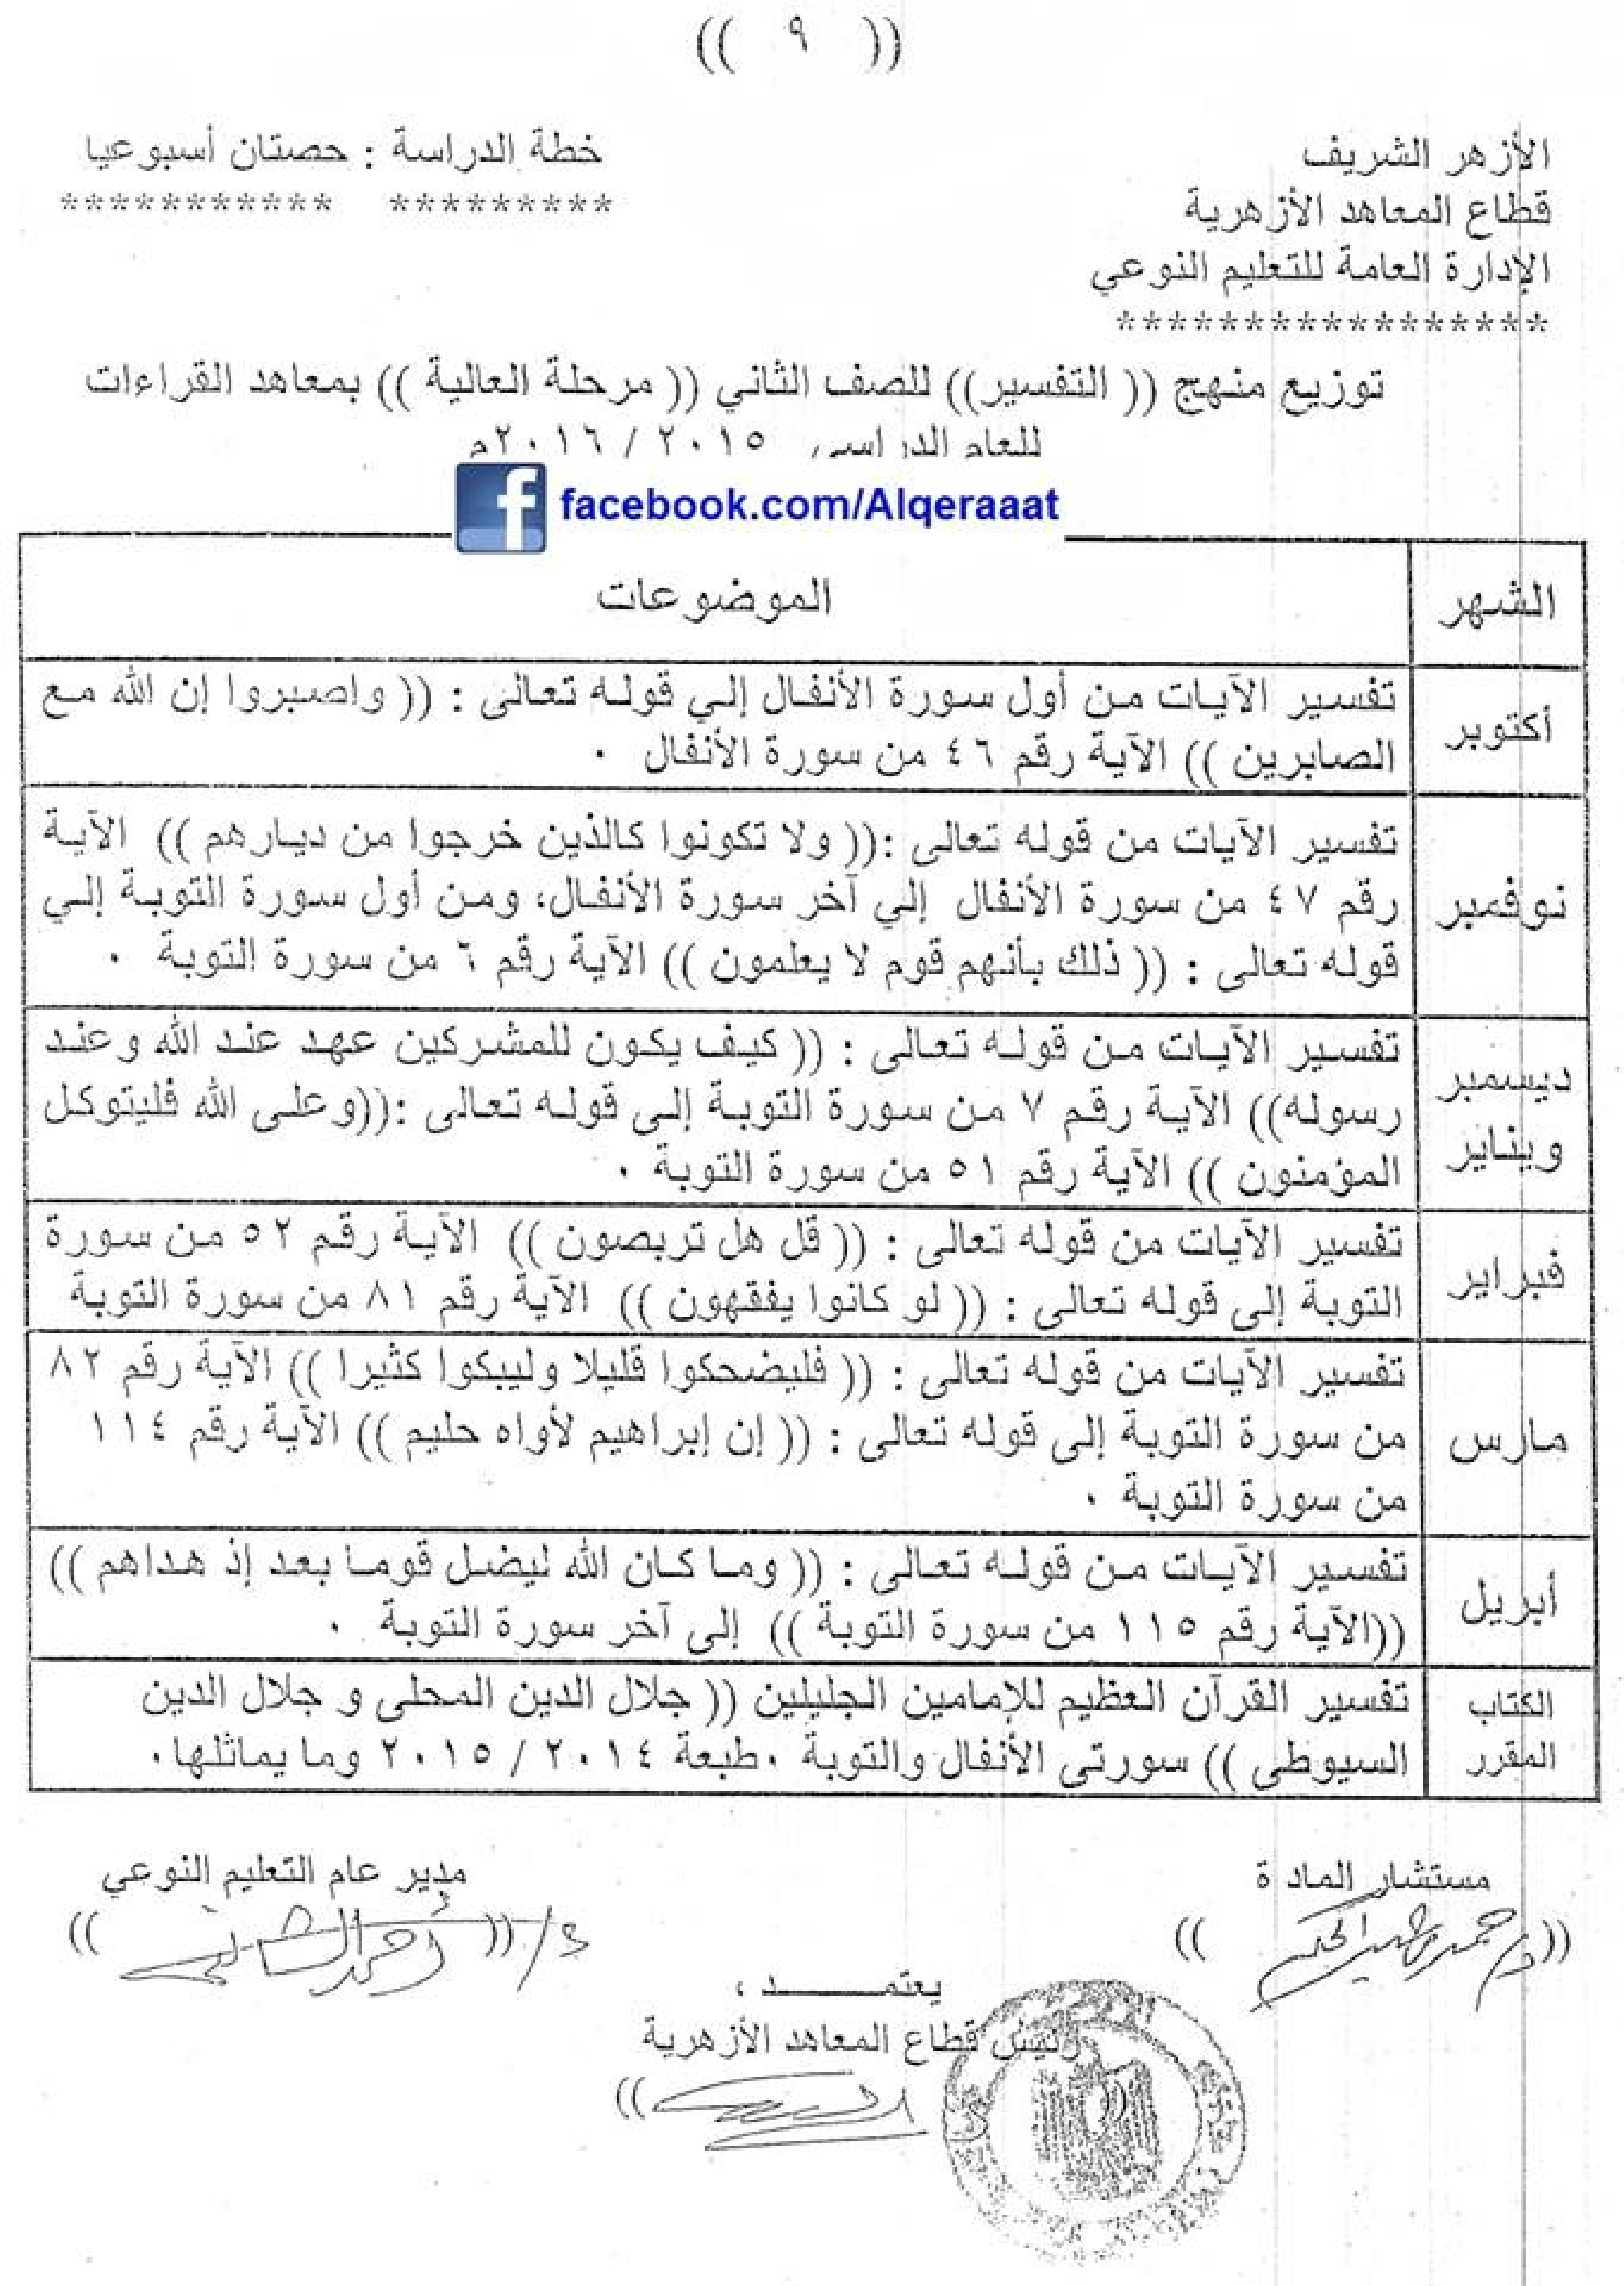 (( ٩ ))
الأزهر الشريف
قطاع المعاهد الأزهرية
الإدارة العامة للتعليم النوعي
*****************
خطة الدراسة : حصتان أسبوعيا
********* ***********
توزيع منهج (( التفسير)) للصف الثاني (( مرحلة العالية )) بمعاهد القراءات
للعام الدراسي ٢٠١٥ / ٢٠١٦م
facebook.com/Alqeraaat
الشهر
الموضوعات
أكتوبر
تفسير الآيات من أول سورة الأنفال إلي قوله تعالى : (( واصبروا إن الله مع
الصابرين )) الآية رقم ٤٦ من سورة الأنفال .
نوفمبر
تفسير الآيات من قوله تعالى :(( ولا تكونوا كالذين خرجوا من ديارهم )) الآية
رقم ٤٧ من سورة الأنفال إلي آخر سورة الأنفال، ومن أول سورة التوبة إلي
قوله تعالى : (( ذلك بأنهم قوم لا يعلمون )) الآية رقم ٦ من سورة التوبة .
ديسمبر
ويناير
تفسير الآيات من قوله تعالى : (( كيف يكون للمشركين عهد عند الله وعند
رسوله)) الآية رقم ٧ من سورة التوبة إلى قوله تعالى :((وعلى الله فليتوكل
المؤمنون )) الآية رقم ٥١ من سورة التوبة .
فبراير
تفسير الآيات من قوله تعالى : (( قل هل تربصون )) الآية رقم ٥٢ من سورة
التوبة إلى قوله تعالى : (( لو كانوا يفقهون )) الآية رقم ٨١ من سورة التوبة
مارس
تفسير الآيات من قوله تعالى : (( فليضحكوا قليلا وليبكوا كثيرا )) الآية رقم ٨٢
من سورة التوبة إلى قوله تعالى : (( إن إبراهيم لأواه حليم )) الآية رقم ١١٤
من سورة التوبة .
أبريل
تفسير الآيات من قوله تعالى : (( وما كان الله ليضل قوما بعد إذ هداهم ))
((الآية رقم ١١٥ من سورة التوبة )) إلى آخر سورة التوبة .
الكتاب
المقرر
تفسير القرآن العظيم للإمامين الجليلين (( جلال الدين المحلى و جلال الدين
السيوطى )) سورتى الأنفال والتوبة .طبعة ٢٠١٤ / ٢٠١٥ وما يماثلها.
مستشار المادة
مدير عام التعليم النوعي
يعتمـــــد ،
رئيس قطاع المعاهد الأزهرية